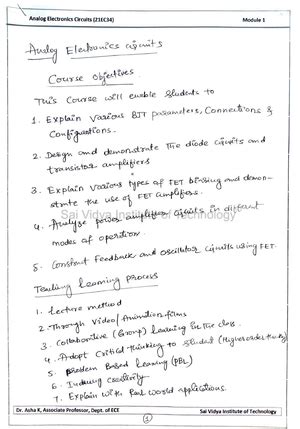 Analog Electronics Circuits (21EC34) Module 1
Analog Electronics Circuits
Course Objectives
This Course will enable Students to
1. Explain Various BJT parameters, Connections &
Configurations.
2. Design and demonstrate the diode circuits and
transistor amplifiers
3. Explain Various types of FET biasing and demon-
strate the use of FET amplifiers.
Sai Vidya Institute of Technology
4. Analyze power amplifier circuits in different
modes of operation.
5. Construct Feedback and Oscillator circuits using FET.
Teaching Learning process
1. Lecture method
2. Through Video/Animation films
3. Collaborative (Group) Learning in the class.
4. Adopt Critical thinking to Student (Higher order thinking)
5. Problem Based Learning (PBL)
6. Inducing Creativity
7. Explain with Real World applications.
Dr. Asha K, Associate Professor, Dept. of ECE Sai Vidya Institute of Technology
1